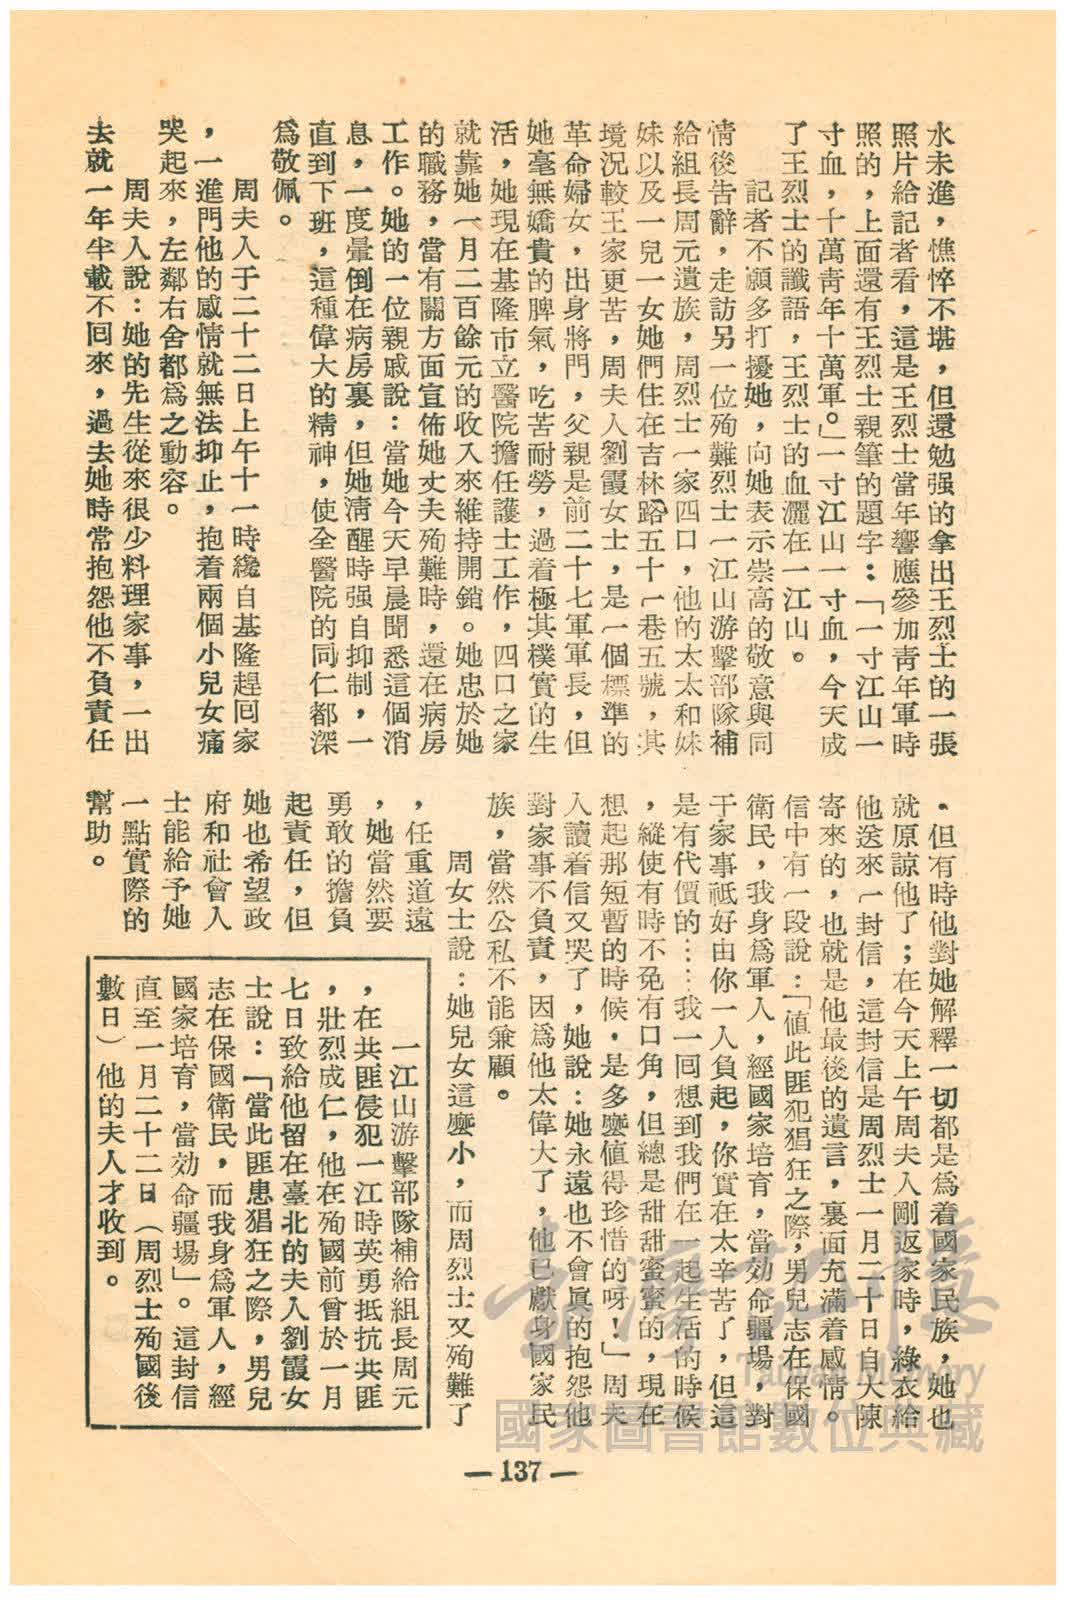 水未進，憔悴不堪，但還勉强的拿出王烈士的一張
照片給記者看，這是王烈士當年響應參加青年軍時
照的，上面還有王烈士親筆的題字：「一寸江山一
寸血，十萬靑年十萬軍。」一寸江山一寸血，今天成
了王烈士的讖語，王烈士的血灑在一江山。
記者不願多打擾她，向她表示崇高的敬意與同
情後告辭，走訪另一位殉難烈士一江山游擊部隊補
給組長周元遺族，周烈士一家四口，他的太太和妹
妹以及一兒一女她們住在吉林路五十一巷五號，其
境況較王家更苦，周夫人劉霞女士，是一個標準的
革命婦女，出身將門，父親是前二十七軍軍長，但
她毫無嬌貴的脾氣，吃苦耐勞，過着極其樸實的生
活，她現在基隆市立醫院擔任護士工作，四口之家
就靠她一月二百餘元的收入來維持開銷。她忠於她
的職務，當有關方面宣佈她丈夫殉難時，還在病房
工作。她的一位親戚說：當她今天早晨聞悉這個消
息，一度暈倒在病房裏，但她淸醒時强自抑制，一
直到下班，這種偉大的精神，使全醫院的同仁都深
爲敬佩。
周夫人于二十二日上午十一時纔自基隆趕回家
，一進門他的感情就無法抑止，抱着兩個小兒女痛
哭起來，左鄰右舍都爲之動容。
周夫人說：她的先生從來很少料理家事，一出
去就一年半載不回來，過去她時常抱怨他不負責任
，但有時他對她解釋一切都是爲着國家民族，她也
就原諒他了；在今天上午周夫人剛返家時，綠衣給
他送來一封信，這封信是周烈士一月二十日自大陳
寄來的，也就是他最後的遺言，裏面充滿着感情。
信中有一段說：「値此匪犯猖狂之際，男兒志在保國
衛民，我身爲軍人，經國家培育，當効命疆場，對
于家事祇好由你一人負起，你實在太辛苦了，但這
是有代價的……我一回想到我們在一起生活的時候
，縱使有時不免有口角，但總是甜甜蜜蜜的，現在
想起那短暫的時候，是多麼值得珍惜的呀！」周夫
人讀着信又哭了，她說：她永遠也不會眞的抱怨他
對家事不負責，因爲他太偉大了，他已獻身國家民
族，當然公私不能兼顧。
周女士說：她兒女這麼小，而周烈士又殉難了
，任重道遠
，她當然要
勇敢的擔負
起責任，但
她也希望政
府和社會人
士能給予她
一點實際的
幫助。
一江山游擊部隊補給組長周元
，在共匪侵犯一江時英勇抵抗共匪
，壯烈成仁，他在殉國前曾於一月
七日致給他留在臺北的夫人劉霞女
士說：「當此匪患猖狂之際，男兒
志在保國衛民，而我身爲軍人，經
國家培育，當効命疆場」。這封信
直至一月二十二日（周烈士殉國後
數日）他的夫人才收到。
— 137 —
臺灣記憶
Taiwan Memory
國家圖書館數位典藏